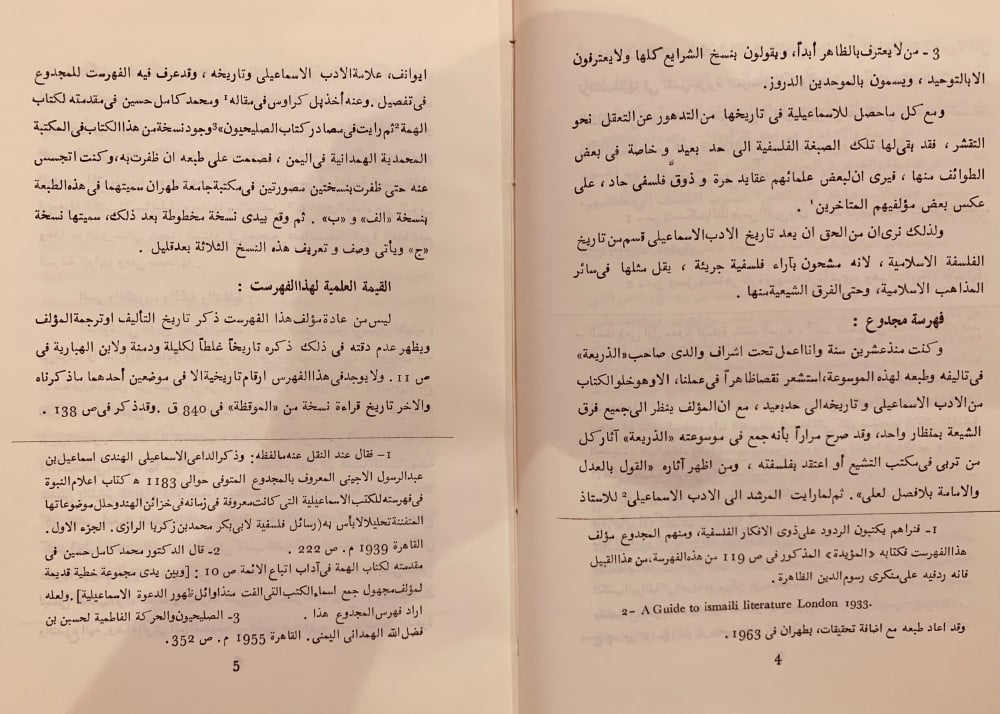 3 - من لا يعترف بالظاهر أبداً، ويقولون بنسخ الشرايع كلها ولا يعترفون
الا بالتوحيد ، ويسمون بالموحدين الدروز.
ومع كل ما حصل للاسماعيلية فى تاريخها من التدهور عن التعقل نحو
التقشر ، فقد بقى لها تلك الصبغة الفلسفية الى حد بعيد و خاصة فى بعض
الطوائف منها ، فيرى ان لبعض علمائهم عقايد حرة و ذوق فلسفى حاد ، على
عكس بعض مؤلفيهم المتاخرين¹ .
ولذلك نرى ان من الحق ان يعد تاريخ الادب الاسماعيلى قسم من تاريخ
الفلسفة الاسلامية ، لانه مشحون بآراء فلسفية جريئة ، يقل مثلها فى سائر
المذاهب الاسلامية، وحتى الفرق الشيعية منها .
فهرسة مجدوع :
و كنت منذ عشرين سنة وانا اعمل تحت اشراف والدى صاحب «الذريعة»
فى تاليفه وطبعه لهذه الموسوعة، استشعر نقصاً ظاهراً فى عملنا، الا وهو خلو الكتاب
من الادب الاسماعيلى و تاريخه الى حد بعيد ، مع ان المؤلف ينظر الى جميع فرق
الشيعة بمنظار واحد، وقد صرح مراراً بأنه جمع فى موسوعته «الذريعة» آثار كل
من تربى فى مكتب التشيع أو اعتقد بفلسفته ، ومن اظهر آثاره «القول بالعدل
والامامة بلافصل لعلى» . ثم لما رايت المرشد الى الادب الاسماعيلى² للاستاذ
1- فتراهم يكتبون الردود على ذوى الافكار الفلسفية، ومنهم المجدوع مؤلف
هذا الفهرست فكتابه «المؤيدة» المذكور فى ص 119 من هذه الفهرسة، من هذا القبيل
فانه ردفيه على منكرى رسوم الدين الظاهرة .
2- A Guide to ismaili literature London 1933.
وقد اعاد طبعه مع اضافة تحقيقات، بطهران فى 1963 .
4
ايوانف، علامة الادب الاسماعيلى وتاريخه ، وقد عرف فيه الفهرست للمجدوع
فى تفصيل . وعنه أخذ پل كراوس فى مقاله¹ ومحمد كامل حسين فى مقدمته لكتاب
الهمة² ثم رايت فى مصادر كتاب الصليحيون»³ وجود نسخة من هذا الكتاب فى المكتبة
المحمدية الهمدانية فى اليمن ، فصممت على طبعه ان ظفرت به، و كنت اتجسس
عنه حتى ظفرت بنسختين مصورتين فى مكتبة جامعة طهران سميتهما فى هذه الطبعة
بنسخة «الف» و «ب» . ثم وقع بيدى نسخة مخطوطة بعد ذلك، سميتها نسخة
«ج» ويأتى وصف و تعريف هذه النسخ الثلاثة بعد قليل .
القيمة العلمية لهذا الفهرست :
ليس من عادة مؤلف هذا الفهرست ذكر تاريخ التأليف او ترجمة المؤلف
ويظهر عدم دقته فى ذلك ذكره تاريخاً غلطاً لكليلة ودمنة ولابن الهبارية فى
ص 11 . ولا يوجد فى هذا الفهرس ارقام تاريخية الا فى موضعين أحدهما ما ذكرناه
والاخر تاريخ قراءة نسخة من «الموقظة» فى 840 ق . وقد ذكر فى ص 138 .
1- فقال عند النقل عنه مالفظه: وذكر الداعى الاسماعيلى الهندى اسماعيل بن
عبدالرسول الاجينى المعروف بالمجدوع المتوفى حوالى 1183 ه كتاب اعلام النبوة
فى فهرسته للكتب الاسماعيلية التى كانت معروفة فى زمانه فى خزائن الهند وحلل موضوعاتها
المتفننة تحليلا لا بأس به (رسائل فلسفية لابى بكر محمد بن زكريا الرازى . الجزء الاول .
القاهرة 1939 م . ص 222 . 2- قال الدكتور محمد كامل حسين فى
مقدمته لكتاب الهمة فى آداب اتباع الائمة ص 10 : [وبين يدى مجموعة خطية قديمة
لمؤلف مجهول جمع اسماء الكتب التى الفت منذ اوائل ظهور الدعوة الاسماعيلية]. ولعله
اراد فهرس المجدوع هذا . 3- الصليحيون والحركة الفاطمية لحسين بن
فضل الله الهمدانى اليمنى . القاهرة 1955 م . ص 352 .
5